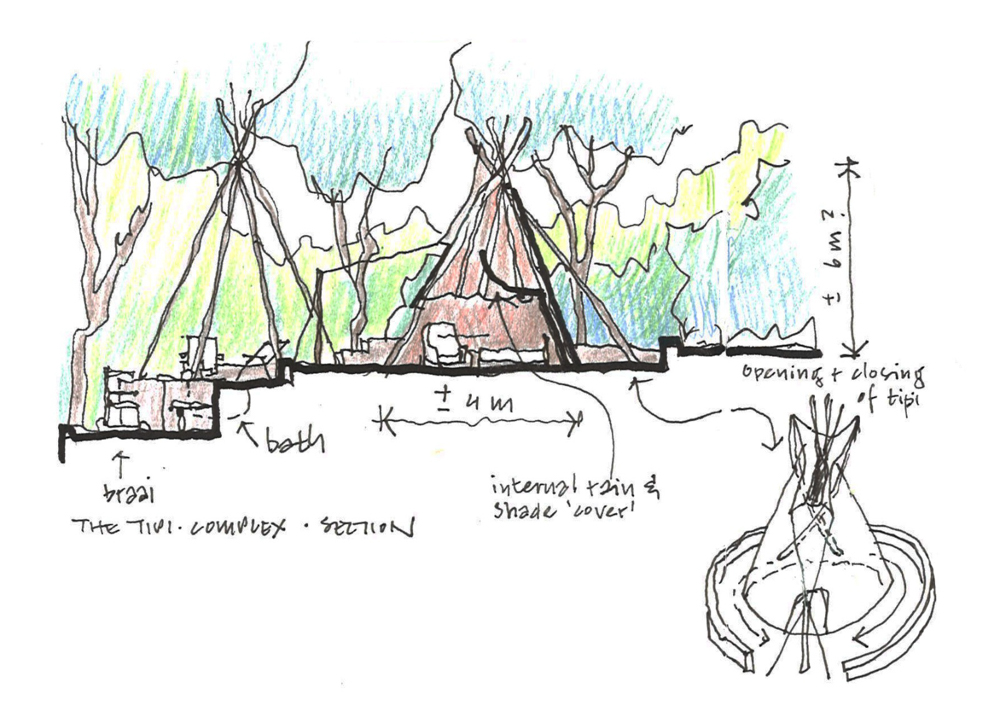 ± 6m
opening + closing
of tipi
± 4 m
bath
braai
internal rain &
shade 'cover'
THE TIPI · COMPLEX · SECTION